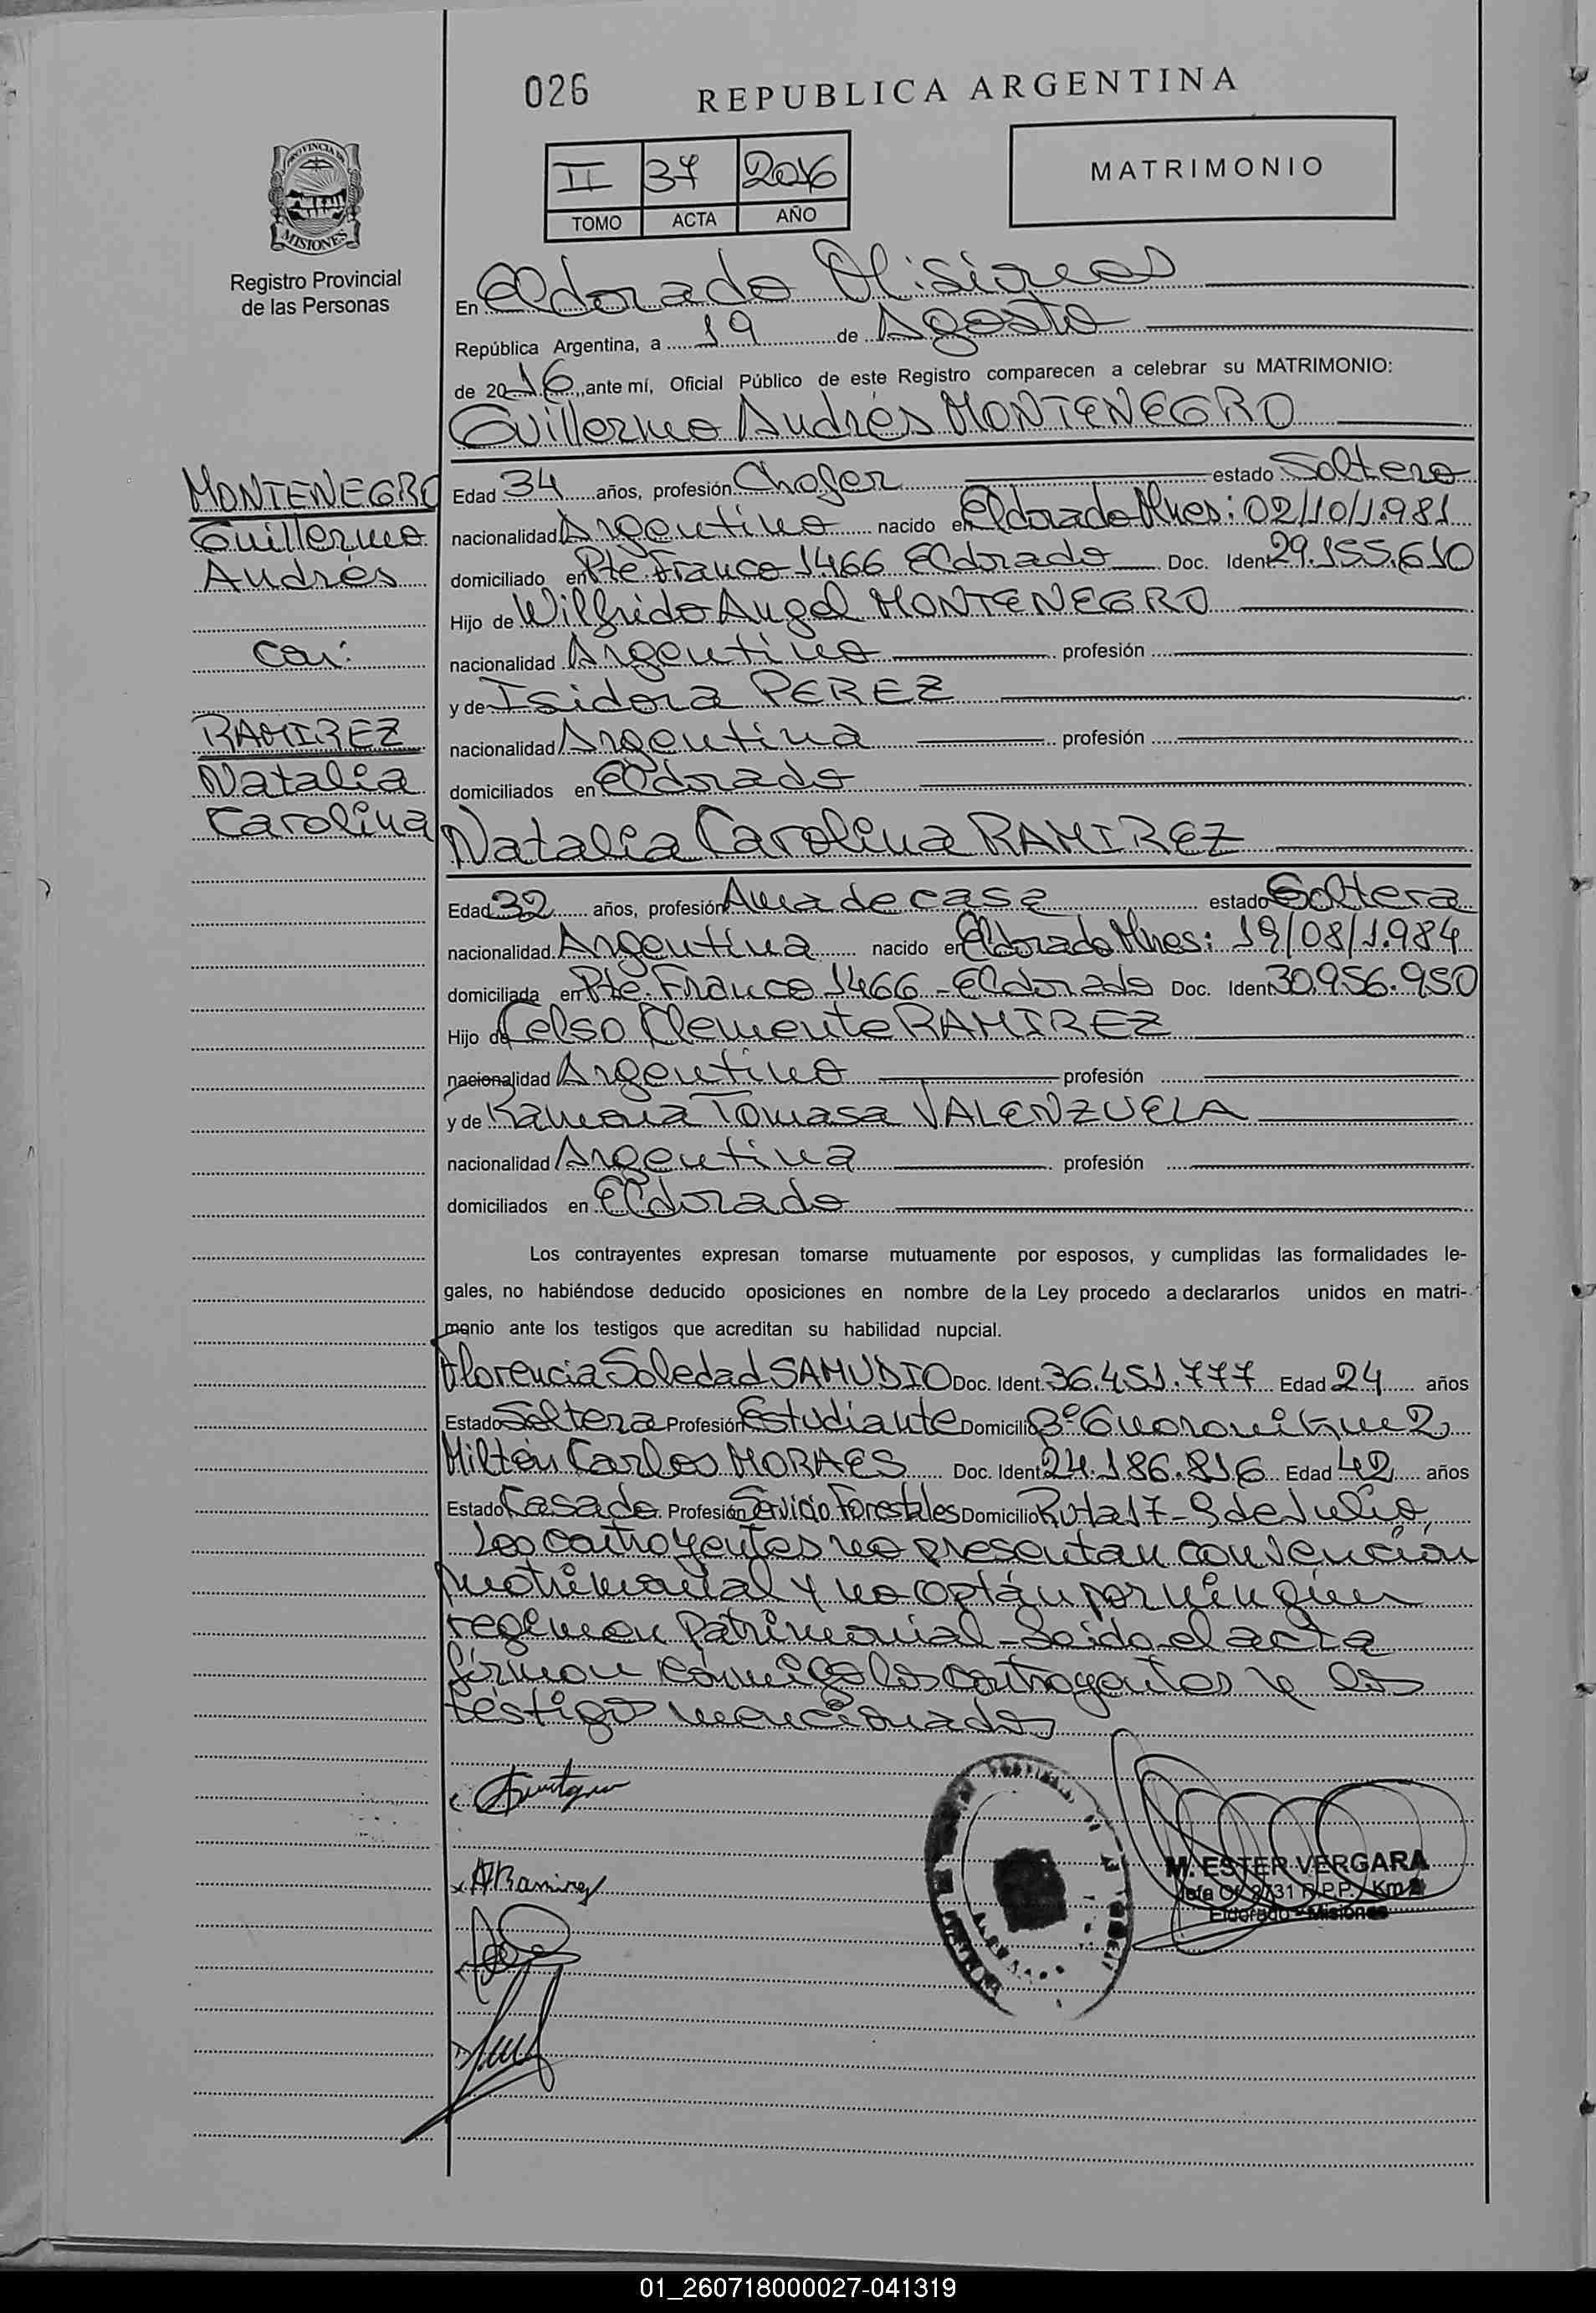 026
REPUBLICA ARGENTINA
II 37 2016
TOMO ACTA AÑO
MATRIMONIO
PROVINCIA DE
MISIONES
Registro Provincial
de las Personas
En Eldorado Misiones
República Argentina, a 19 de Agosto
de 2016, ante mí, Oficial Público de este Registro comparecen a celebrar su MATRIMONIO:
Guillermo Andrés MONTENEGRO
MONTENEGRO
Guillermo
Andrés
Con:
RAMIREZ
Natalia
Carolina
Edad 34 años, profesión Chofer estado Soltero
nacionalidad Argentino nacido en Eldorado Mnes: 02/10/1.981
domiciliado en Pte. Franco 1466 Eldorado Doc. Ident 29.155.610
Hijo de Wilfrido Angel MONTENEGRO
nacionalidad Argentino profesión
y de Isidora PEREZ
nacionalidad Argentina profesión
domiciliados en Eldorado
Natalia Carolina RAMIREZ
Edad 32 años, profesión Ama de casa estado Soltera
nacionalidad Argentina nacido en Eldorado Mnes: 19/08/1.984
domiciliada en Pte. Franco 1466 - Eldorado Doc. Ident 30.956.950
Hijo de Celso Clemente RAMIREZ
nacionalidad Argentino profesión
y de Ramona Tomasa VALENZUELA
nacionalidad Argentina profesión
domiciliados en Eldorado
Los contrayentes expresan tomarse mutuamente por esposos, y cumplidas las formalidades le-
gales, no habiéndose deducido oposiciones en nombre de la Ley procedo a declararlos unidos en matri-
monio ante los testigos que acreditan su habilidad nupcial.
Florencia Soledad SAMUDIO Doc. Ident 36.451.777 Edad 24 años
Estado Soltera Profesión Estudiante Domicilio Bº Guaraní Km 2,
Milton Carlos MORAES Doc. Ident 24.186.816 Edad 42 años
Estado Casado Profesión Servicio Forestales Domicilio Ruta 17 - 9 de Julio,
Los contrayentes no presentan convención
matrimonial y no optan por ningún
regimen Patrimonial - Leida el acta
firman conmigo los contrayentes y los
testigos mencionados
ARamirez
M. ESTER VERGARA
Jefa Of. 2731 R.P.P. Km 2
Eldorado - Misiones
01_260718000027-041319